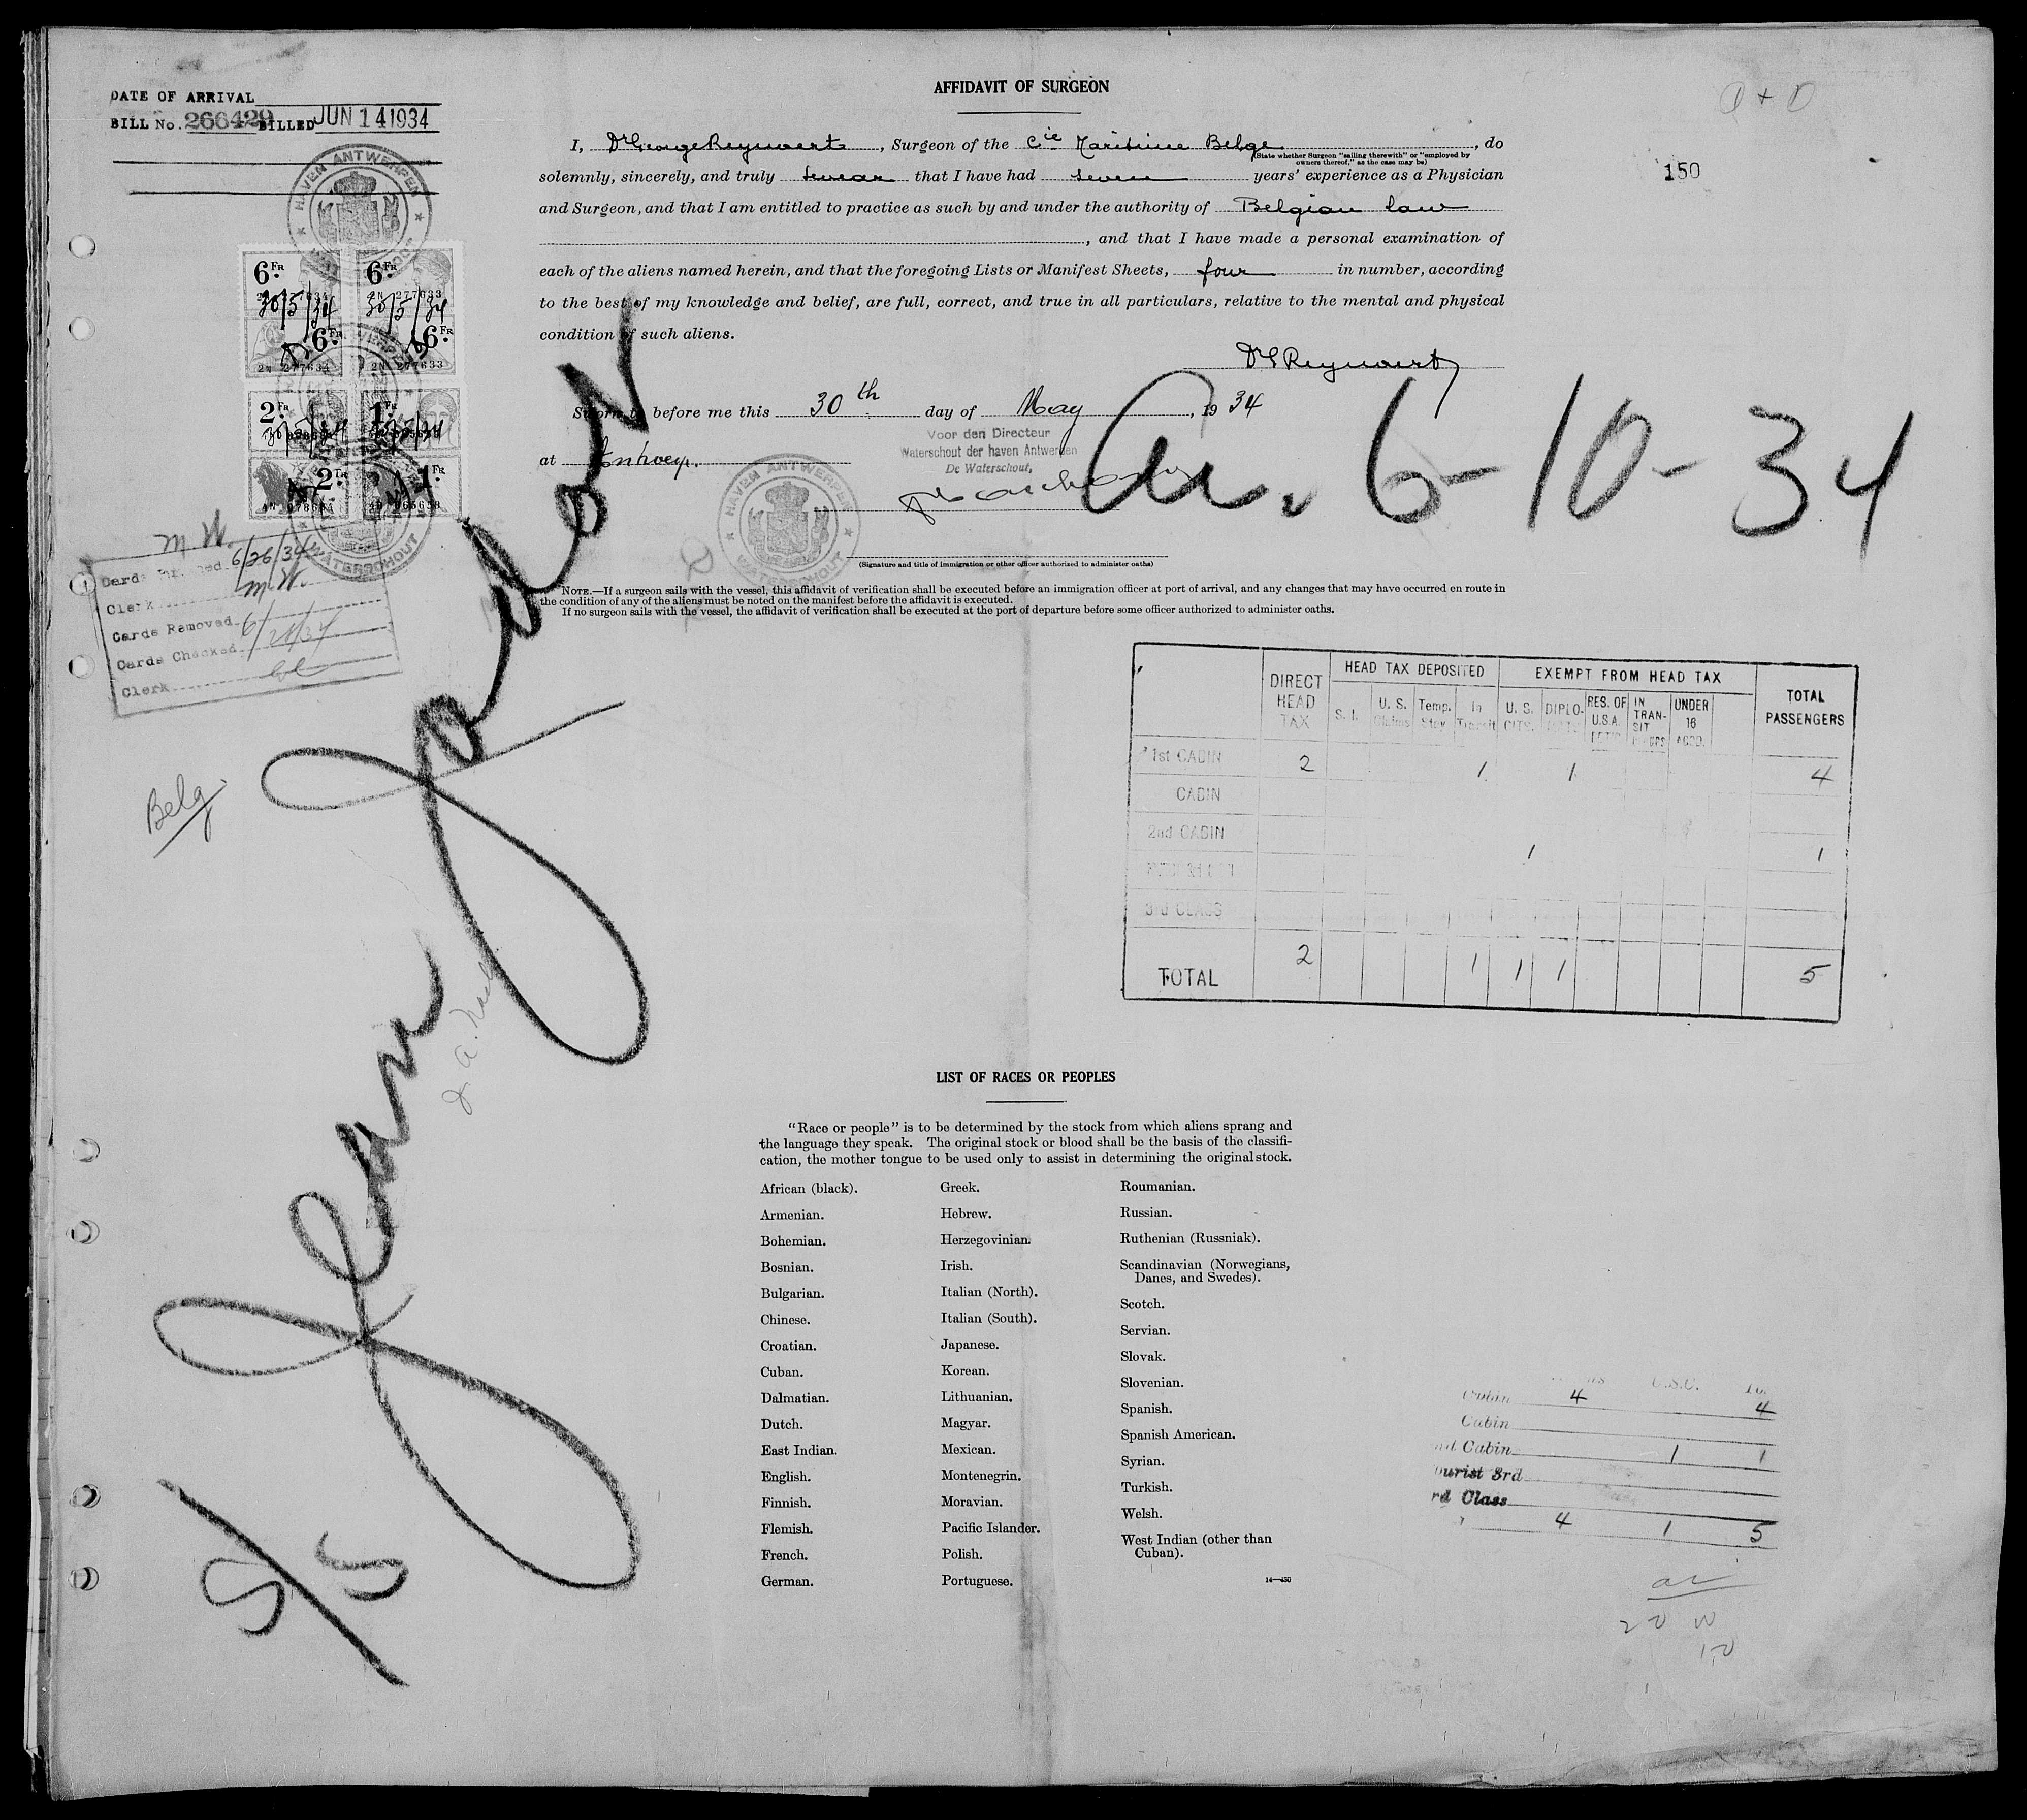 DATE OF ARRIVAL
BILL No. 266429 BILLED JUN 14 1934
AFFIDAVIT OF SURGEON
150
I, Dr George Reynaert, Surgeon of the Cie Maritime Belge, do
(State whether Surgeon "sailing therewith" or "employed by
owners thereof," as the case may be)
solemnly, sincerely, and truly swear that I have had seven years' experience as a Physician
and Surgeon, and that I am entitled to practice as such by and under the authority of Belgian law
, and that I have made a personal examination of
each of the aliens named herein, and that the foregoing Lists or Manifest Sheets, four in number, according
to the best of my knowledge and belief, are full, correct, and true in all particulars, relative to the mental and physical
condition of such aliens.
Dr G Reynaert
Sworn to before me this 30th day of May, 1934
at Antwerp.
Voor den Directeur
Waterschout der haven Antwerpen
De Waterschout,
6-10-34
(Signature and title of immigration or other officer authorized to administer oaths)
NOTE.—If a surgeon sails with the vessel, this affidavit of verification shall be executed before an immigration officer at port of arrival, and any changes that may have occurred en route in
the condition of any of the aliens must be noted on the manifest before the affidavit is executed.
If no surgeon sails with the vessel, the affidavit of verification shall be executed at the port of departure before some officer authorized to administer oaths.
HAVEN ANTWERPEN
WATERSCHOUT
6 Fr 6 Fr
2N 277634 2N 277633
30/5/34 30/5/34
6 Fr 6 Fr
2N 277634 2N 277633
2 Fr 1 Fr
2 Fr 1 Fr
HAVEN ANTWERPEN
WATERSCHOUT
M.W.
Cards 6/26/34
Clerk M.W.
Cards Removed
Cards Checked 6/28/34
Clerk
Belg
S/S Jean Jadot
HEAD TAX DEPOSITED EXEMPT FROM HEAD TAX
DIRECT HEAD TAX S. I. U. S. Claims Temp. Stay In Transit U. S. CITS. DIPLO- RES. OF U.S.A. IN TRAN-SIT UNDER 16 ACCD. TOTAL PASSENGERS
1st CABIN 2 1 1 4
CABIN
2nd CABIN
1 1
3rd CLASS
TOTAL 2 1 1 1 5
LIST OF RACES OR PEOPLES
"Race or people" is to be determined by the stock from which aliens sprang and
the language they speak. The original stock or blood shall be the basis of the classifi-
cation, the mother tongue to be used only to assist in determining the original stock.
African (black).
Armenian.
Bohemian.
Bosnian.
Bulgarian.
Chinese.
Croatian.
Cuban.
Dalmatian.
Dutch.
East Indian.
English.
Finnish.
Flemish.
French.
German.
Greek.
Hebrew.
Herzegovinian.
Irish.
Italian (North).
Italian (South).
Japanese.
Korean.
Lithuanian.
Magyar.
Mexican.
Montenegrin.
Moravian.
Pacific Islander.
Polish.
Portuguese.
Roumanian.
Russian.
Ruthenian (Russniak).
Scandinavian (Norwegians,
Danes, and Swedes).
Scotch.
Servian.
Slovak.
Slovenian.
Spanish.
Spanish American.
Syrian.
Turkish.
Welsh.
West Indian (other than
Cuban).
14—430
U.S.C.
Cabin 4 4
Cabin
Cabin 1 1
ourist 3rd
rd Class
4 1 5